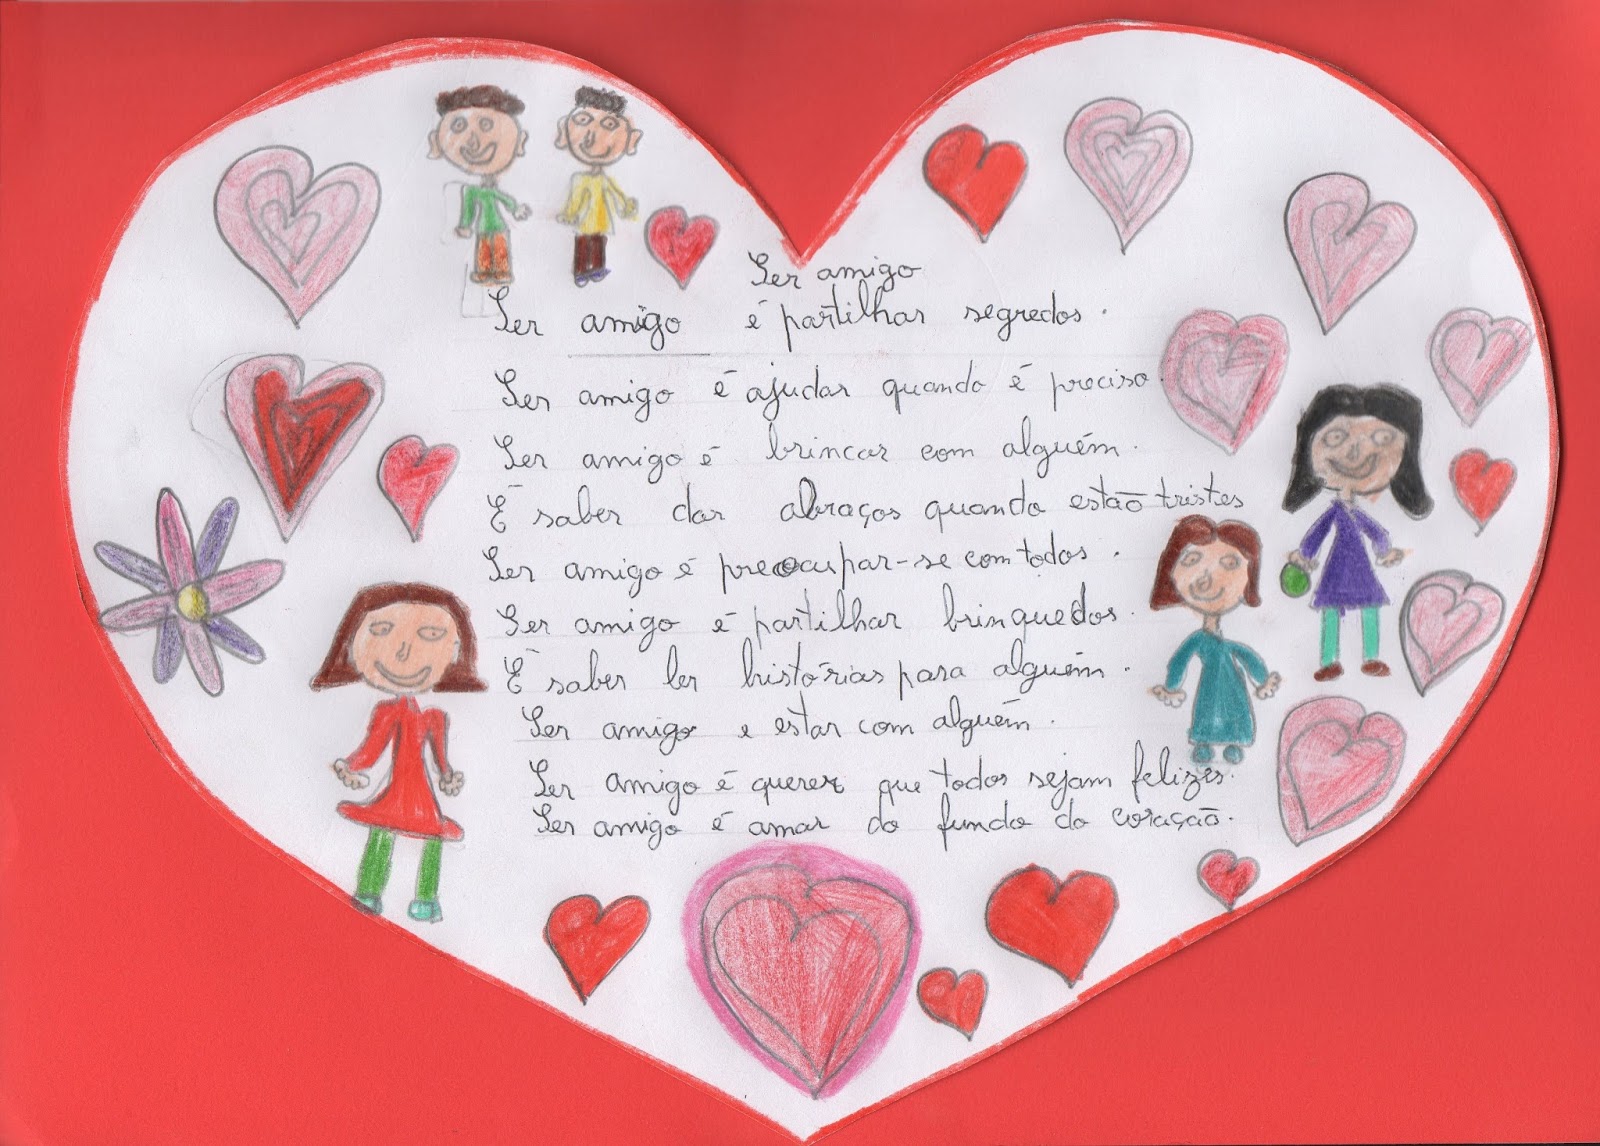 Ser amigo
Ser amigo é partilhar segredos.
Ser amigo é ajudar quando é preciso.
Ser amigo é brincar com alguém.
É saber dar abraços quando estão tristes
Ser amigo é preocupar-se com todos.
Ser amigo é partilhar brinquedos.
É saber ler histórias para alguém.
Ser amigo e estar com alguém.
Ser amigo é querer que todos sejam felizes.
Ser amigo é amar do fundo do coração.